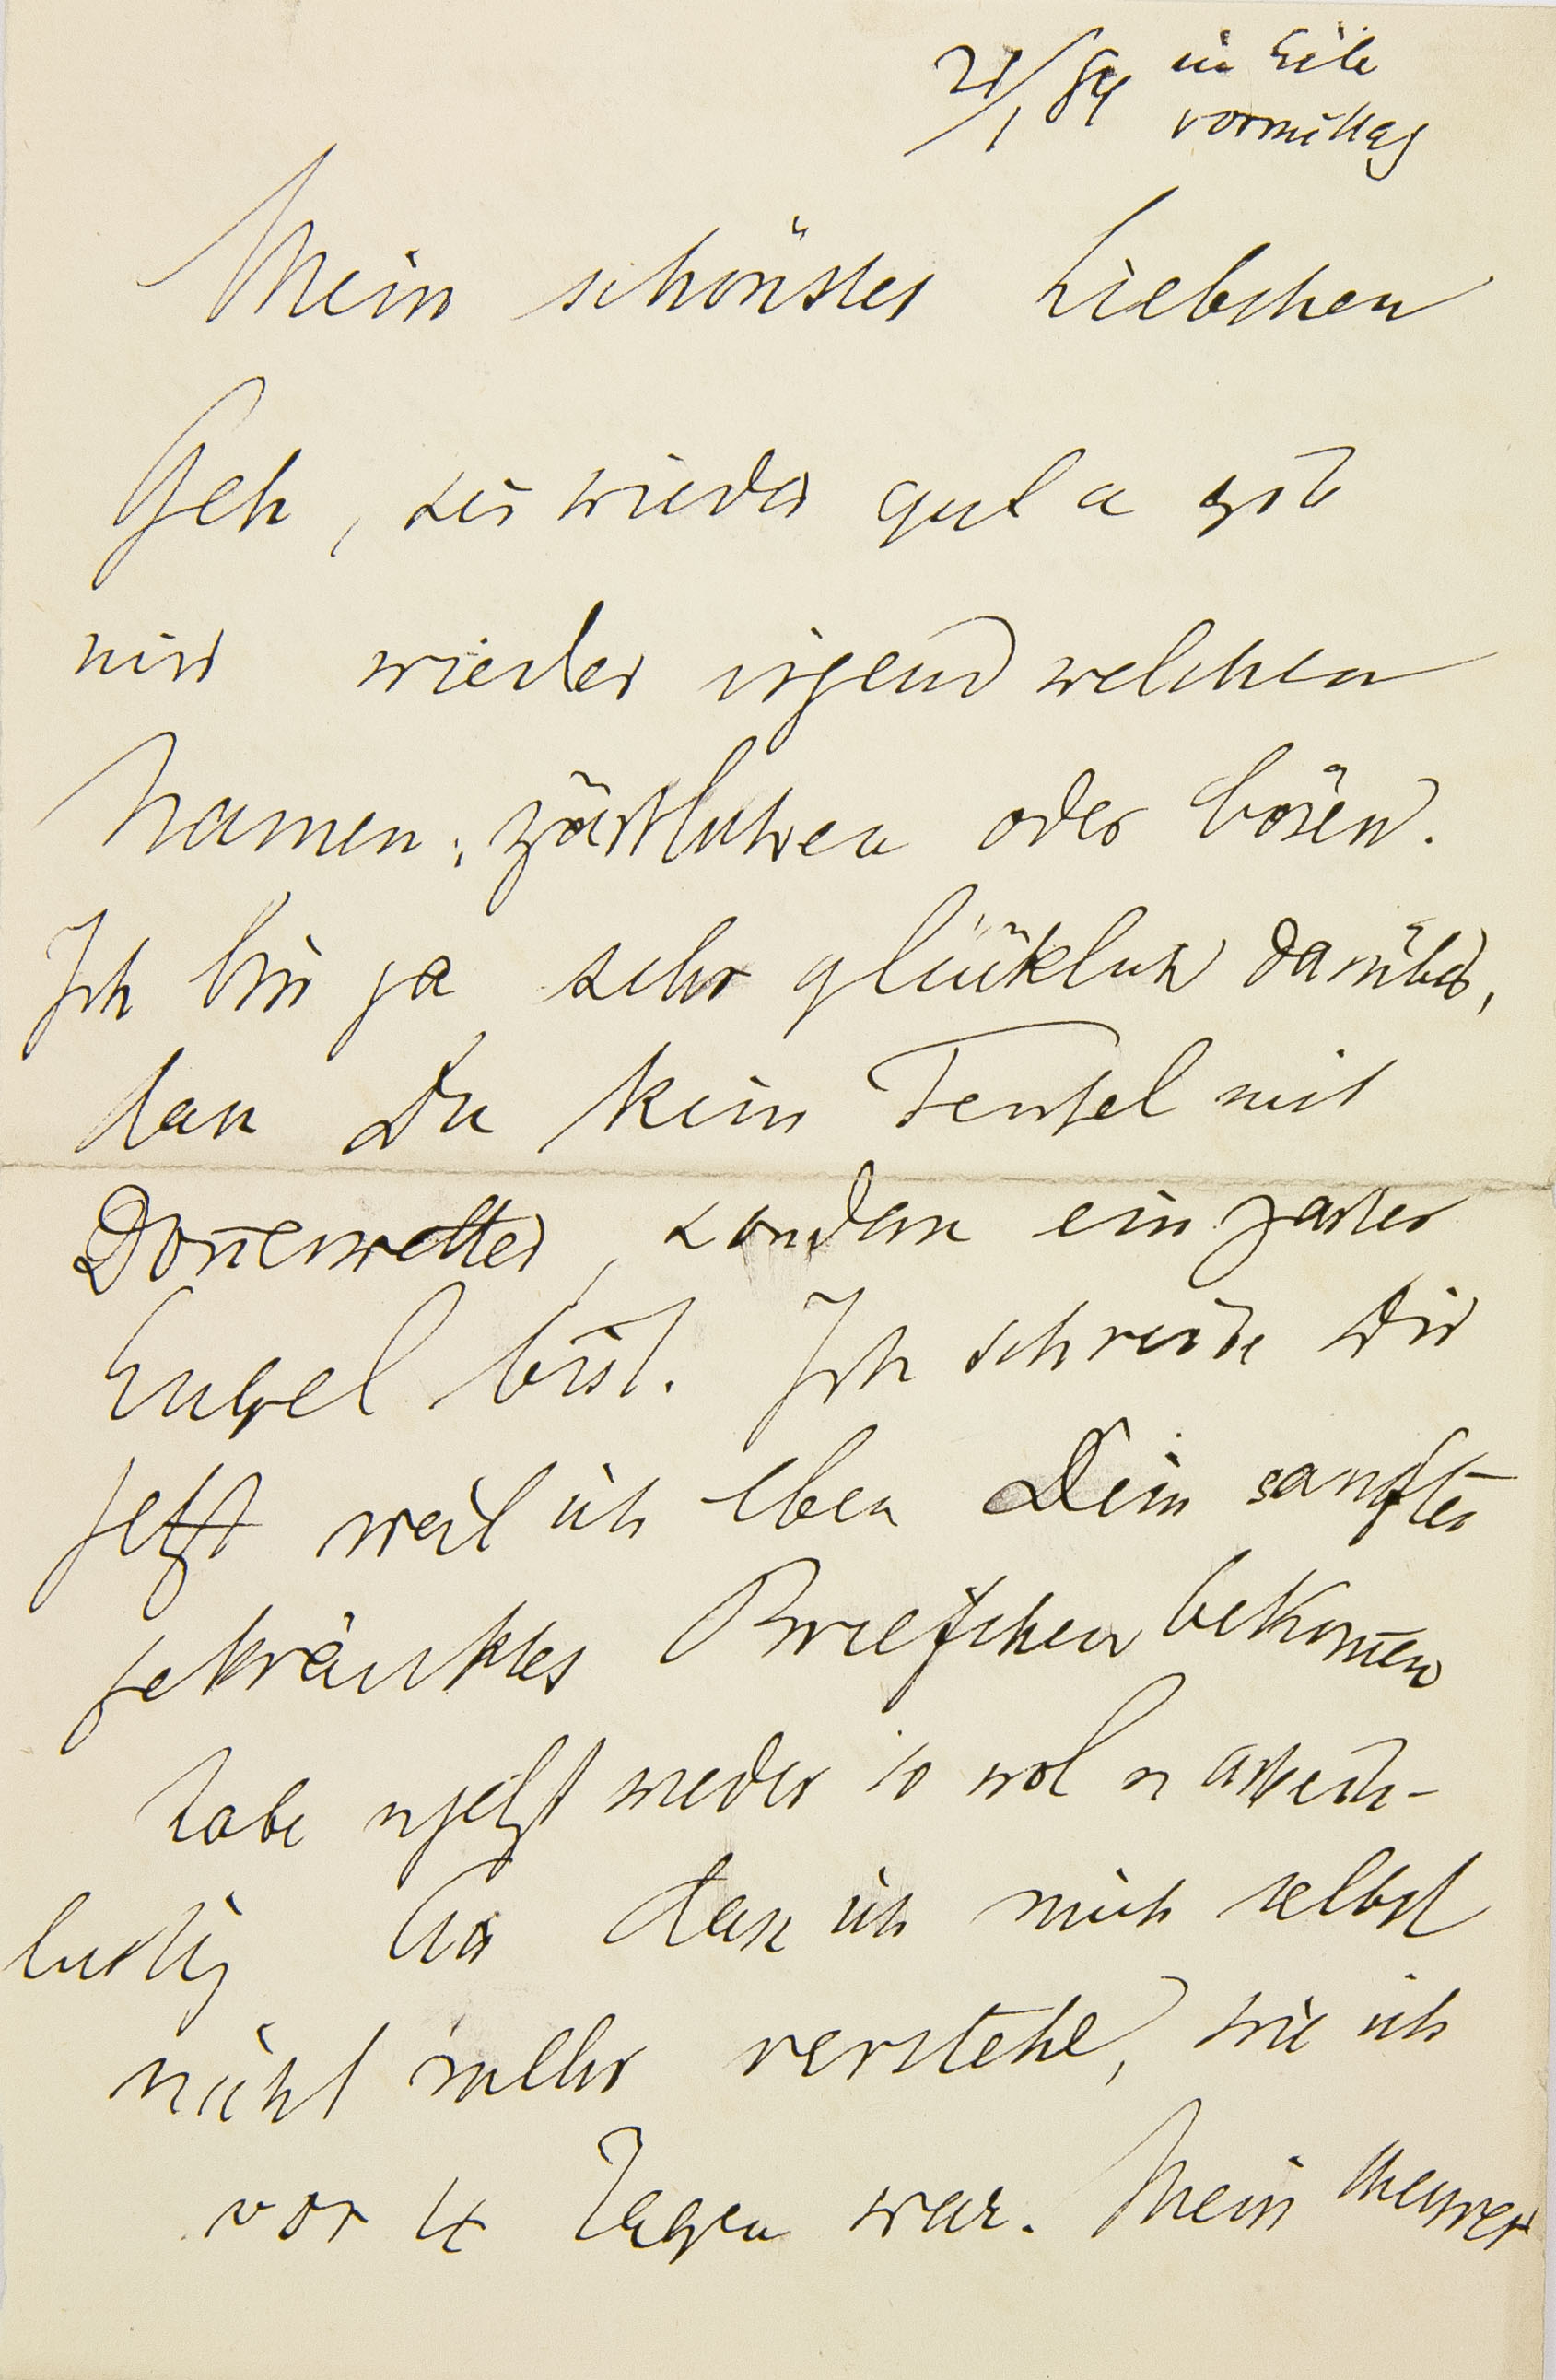 21/1 84 in Eile
vormittag
Mein schönstes Liebchen
Geh, sei wieder gut u gib
mir wieder irgend welchen
Namen, zärtlichen oder bösen.
Ich bin ja sehr glücklich darüber,
daß Du kein Teufel mit
Don̄erwetter, sondern ein zarter
Engel bist. Ich schreibe Dir
jetzt weil ich eben Dein sanftes
gekränktes Briefchen bekom̄en
habe u jetzt wieder so wol u arbeits-
lustig bin daß ich mich selbst
nicht mehr verstehe, wie ich
vor 4 Tagen war. Mein theures